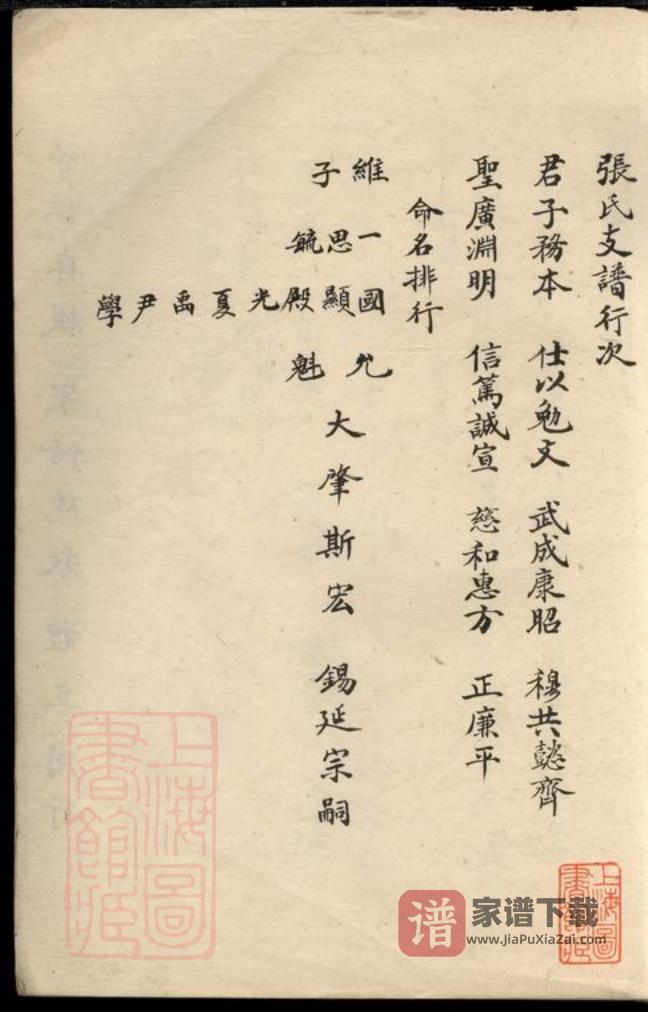 張氏支譜行次
君子務本 仕以勉文 武成康昭 穆共懿齊
聖廣淵明 信篤誠宣 慈和惠方 正廉平
命名排行
維一國允
子思顯
毓殿魁
光
夏
禹
尹
學
大肇斯宏 錫延宗嗣
上海圖書館藏
上海圖書館藏
谱 家谱下载
www.JiaPuXiaZai.com